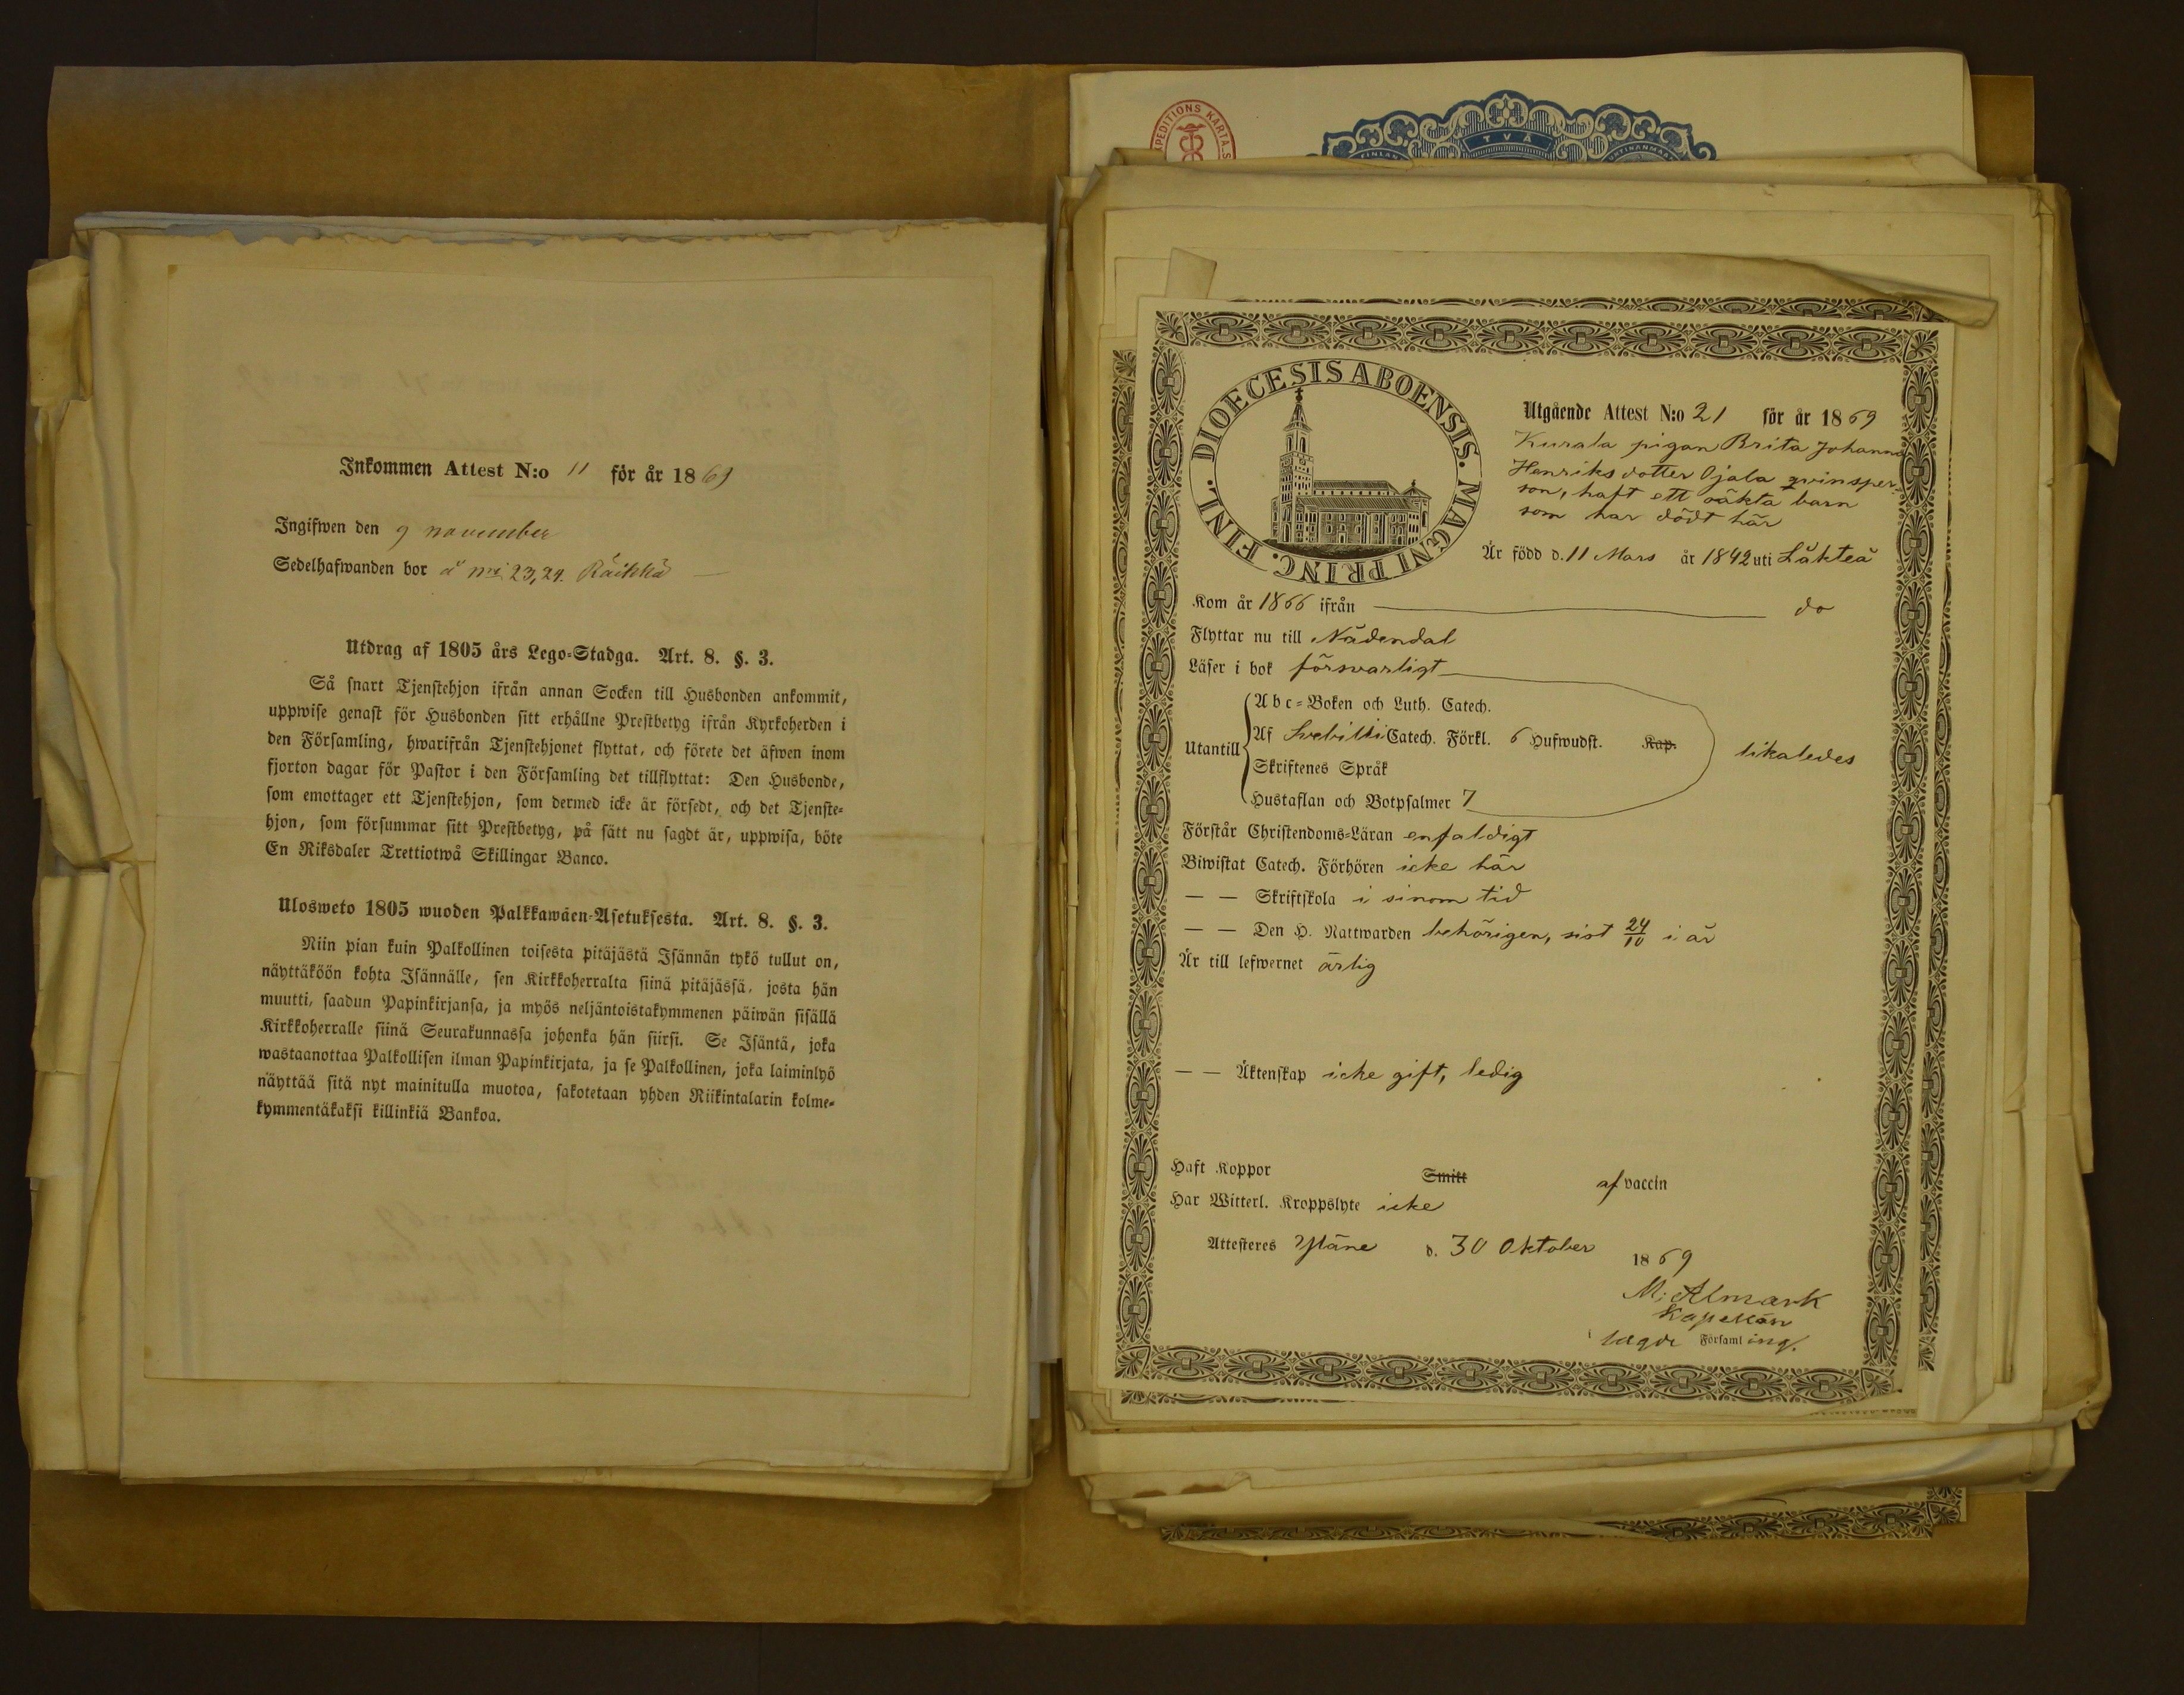 Inkommen Attest N:o 11 för år 1869
Ingifwen den 9 november
Sedelhafwanden bor å nri 23, 24. Räikkä
Utdrag af 1805 års Lego-Stadga. Art. 8. §. 3.
Så snart Tjenstehjon ifrån annan Socken till Husbonden ankommit,
uppwise genast för Husbonden sitt erhållne Prestbetyg ifrån Kyrkoherden i
den Församling, hwarifrån Tjenstehjonet flyttat, och förete det äfwen inom
fjorton dagar för Pastor i den Församling det tillflyttat: Den Husbonde,
som emottager ett Tjenstehjon, som dermed icke är försedt, och det Tjenste-
hjon, som försummar sitt Prestbetyg, på sätt nu sagdt är, uppwisa, böte
En Riksdaler Trettiotwå Skillingar Banco.
Ulosweto 1805 wuoden Palkkawäen-Asetuksesta. Art. 8. §. 3.
Niin pian kuin Palkollinen toisesta pitäjästä Isännän tykö tullut on,
näyttäköön kohta Isännälle, sen Kirkkoherralta siinä pitäjässä, josta hän
muutti, saadun Papinkirjansa, ja myös neljäntoistakymmenen päiwän sisällä
Kirkkoherralle siinä Seurakunnassa johonka hän siirsi. Se Isäntä, joka
wastaanottaa Palkollisen ilman Papinkirjata, ja se Palkollinen, joka laiminlyö
näyttää sitä nyt mainitulla muotoa, sakotetaan yhden Riikintalarin kolme-
kymmentäkaksi killinkiä Bankoa.
EXPEDITIONS KARTA
TVÅ
FINLAN
DIOECESIS ABOENSIS. MAGNI PRINC. FINL.
Utgående Attest N:o 21 för år 1869
Kurala pigan Brita Johanna
Henriks dotter Ojala qvinsper-
son, haft ett oäkta barn
som har dödt här
Är född d. 11 Mars år 1842 uti Låkteå
Kom år 1866 ifrån do
Flyttar nu till Nådendal
Läser i bok försvarligt
Utantill
Abc-Boken och Luth. Catech.
Af Svebilii Catech. Förkl. 6 Hufwudst. Kap.
Skriftenes Språk
Hustaflan och Botpsalmer 7
likaledes
Förstår Christendoms-Läran enfaldigt
Biwistat Catech. Förhören icke här
— — Skriftskola i sinom tid
— — Den H. Nattwarden behörigen, sist 24/10 i år
Är till lefwernet ärlig
— — Äktenskap icke gift, ledig
Haft Koppor Smitt af vaccin
Har Witterl. Kroppslyte icke
Attesteres Yläne d. 30 Oktober 1869
M: Almark
Kapellan
i sagde Församling.